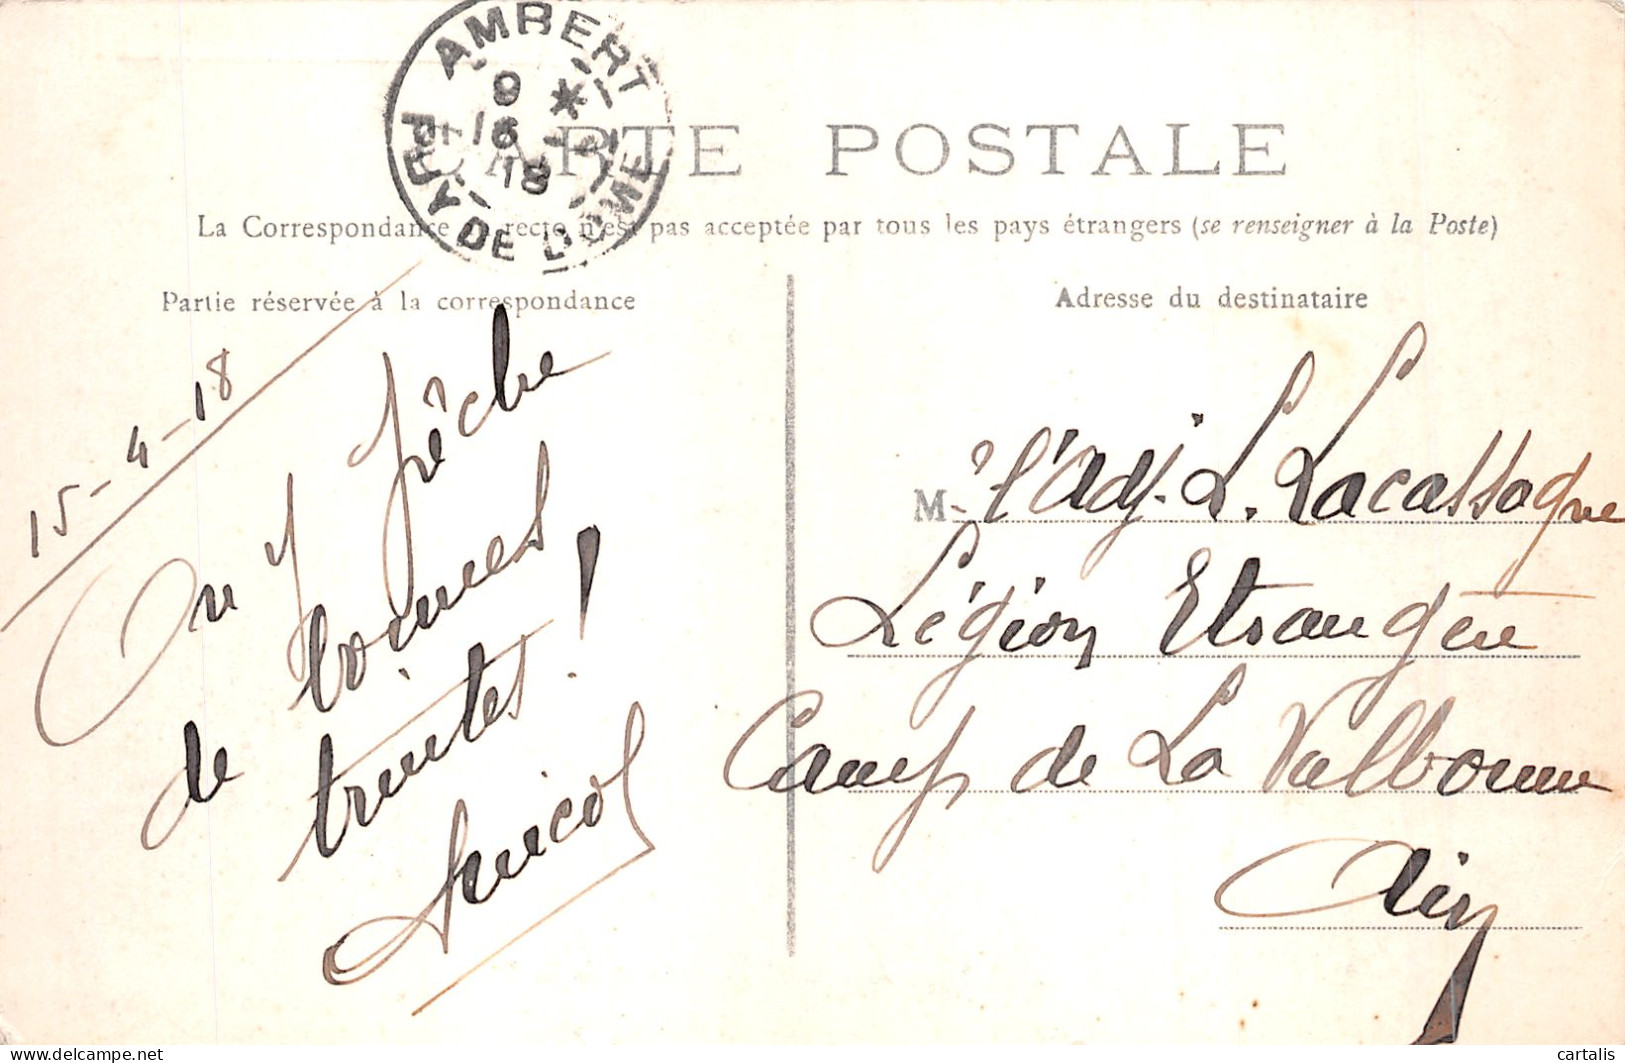 AMBERT
9 *
16 - 4
18
PUY-DE-DOME
CARTE POSTALE
La Correspondance au recto n'est pas acceptée par tous les pays étrangers (se renseigner à la Poste)
Partie réservée à la correspondance
Adresse du destinataire
15-4-18
On y pêche
de bonnes
truites !
M. l'Adj. L. Lacassagne
Légion Etrangère
Camp de La Valbonne
Ain
cartalis